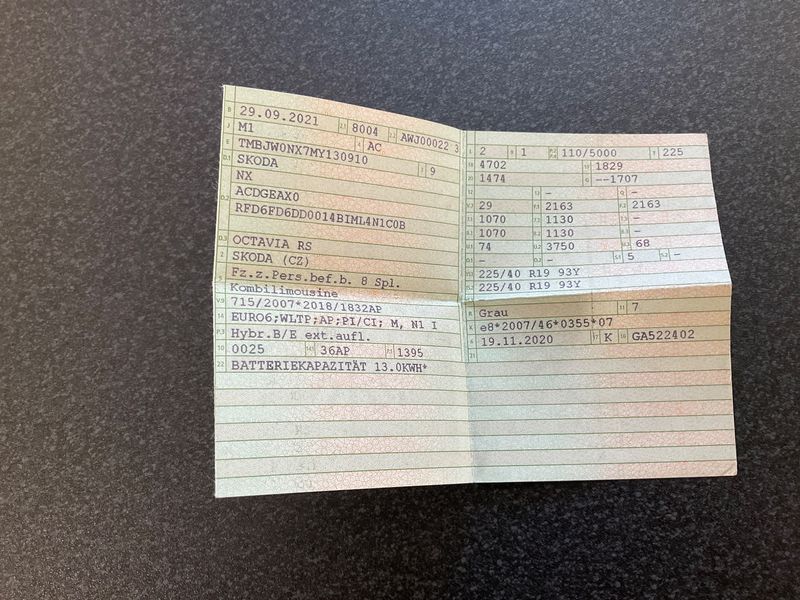 B 29.09.2021 2.1 8004 2.2 AWJ00022 3
J M1 4 AC
E TMBJW0NX7MY130910 3 9
D.1 SKODA
NX
D.2 ACDGEAX0
RFD6FD6DD0014BIML4N1C0B
D.3 OCTAVIA RS
2 SKODA (CZ)
5 Fz.z.Pers.bef.b. 8 Spl.
Kombilimousine
V.9 715/2007*2018/1832AP
14 EURO6;WLTP;AP;PI/CI; M, N1 I
P.3 Hybr.B/E ext.aufl.
10 0025 14.1 36AP P.1 1395
22 BATTERIEKAPAZITÄT 13.0KWH*
L 2 9 1 P.2 P.4 110/5000 T 225
18 4702 19 1829
20 1474 G --1707
12 - 13 - Q -
V.7 29 F.1 2163 F.2 2163
7.1 1070 7.2 1130 7.3 -
8.1 1070 8.2 1130 8.3 -
U.1 74 U.2 3750 U.3 68
O.1 - O.2 - S.1 5 S.2 -
15.1 225/40 R19 93Y
15.2 225/40 R19 93Y
R Grau 11 7
K e8*2007/46*0355*07
6 19.11.2020 17 K 16 GA522402
21